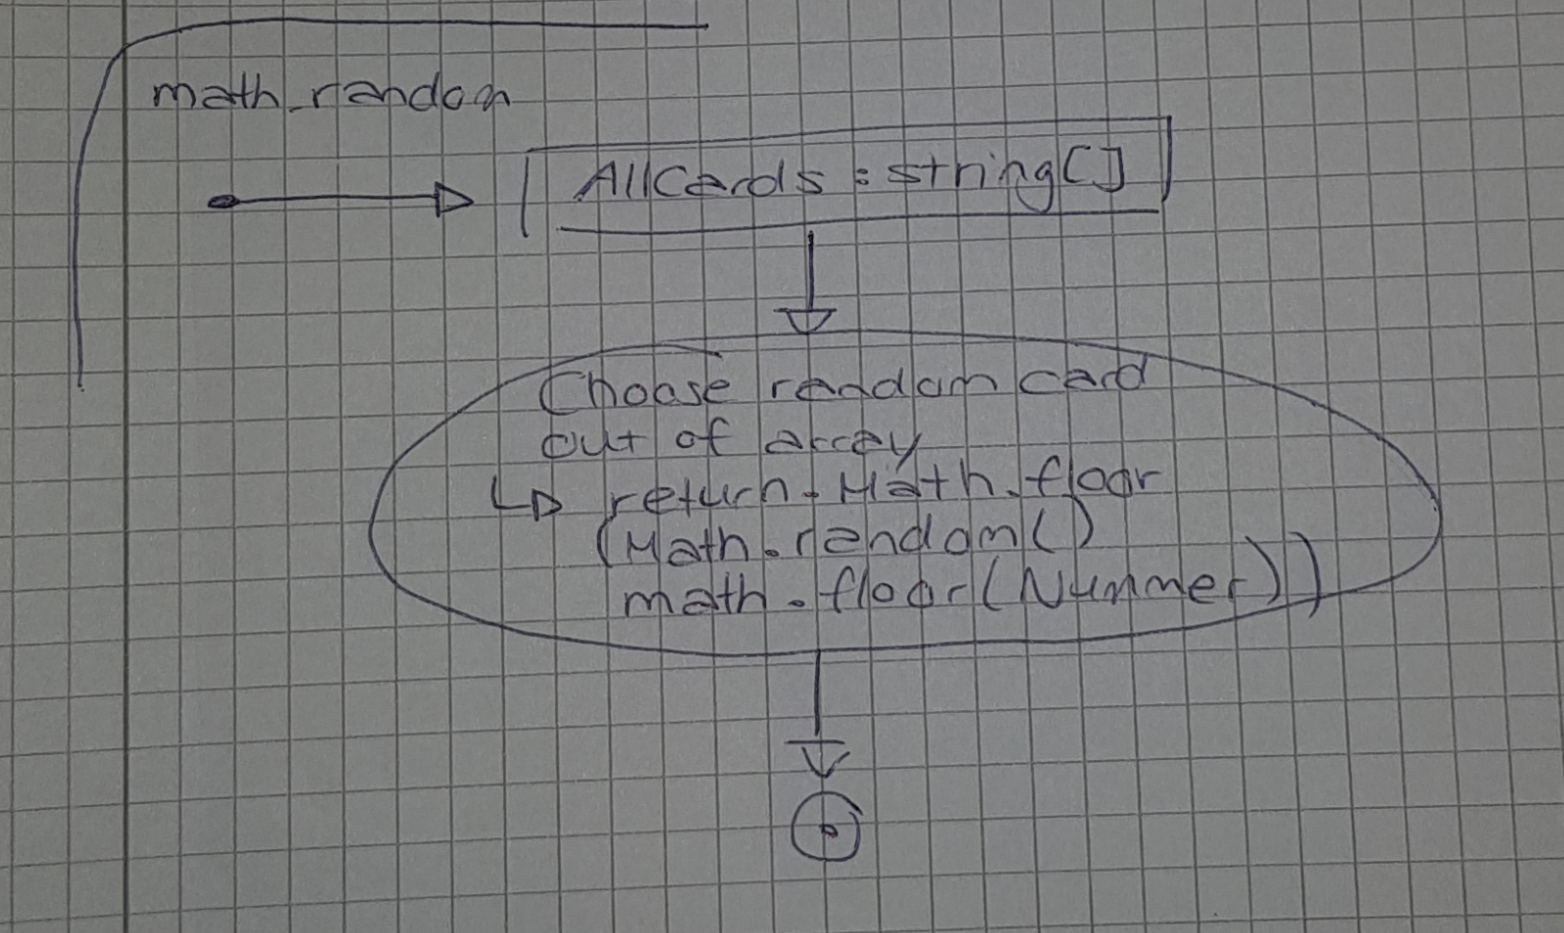 math.random
AllCards : string[]
Choose random card
out of array
return. Math.floor
(Math.random()
math.floor(Nummer))